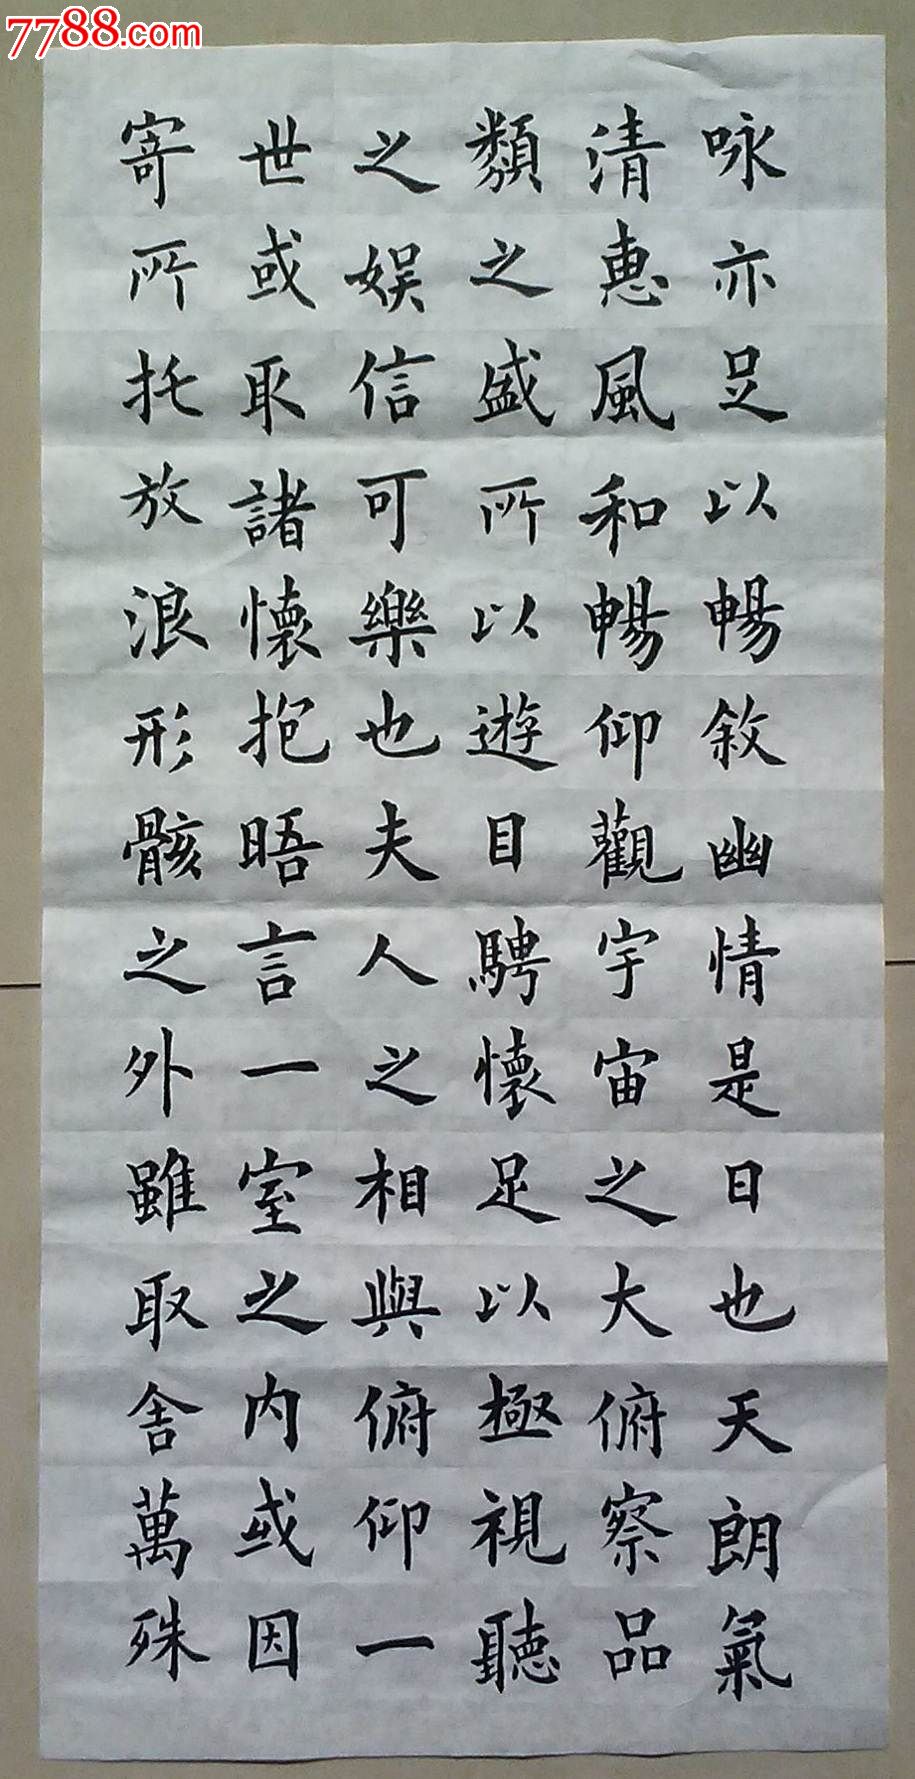 7788.com
咏亦足以暢敘幽情是日也天朗氣
清惠風和暢仰觀宇宙之大俯察品
類之盛所以遊目騁懷足以極視聽
之娱信可樂也夫人之相與俯仰一
世或取諸懷抱晤言一室之内或因
寄所托放浪形骸之外雖取舍萬殊